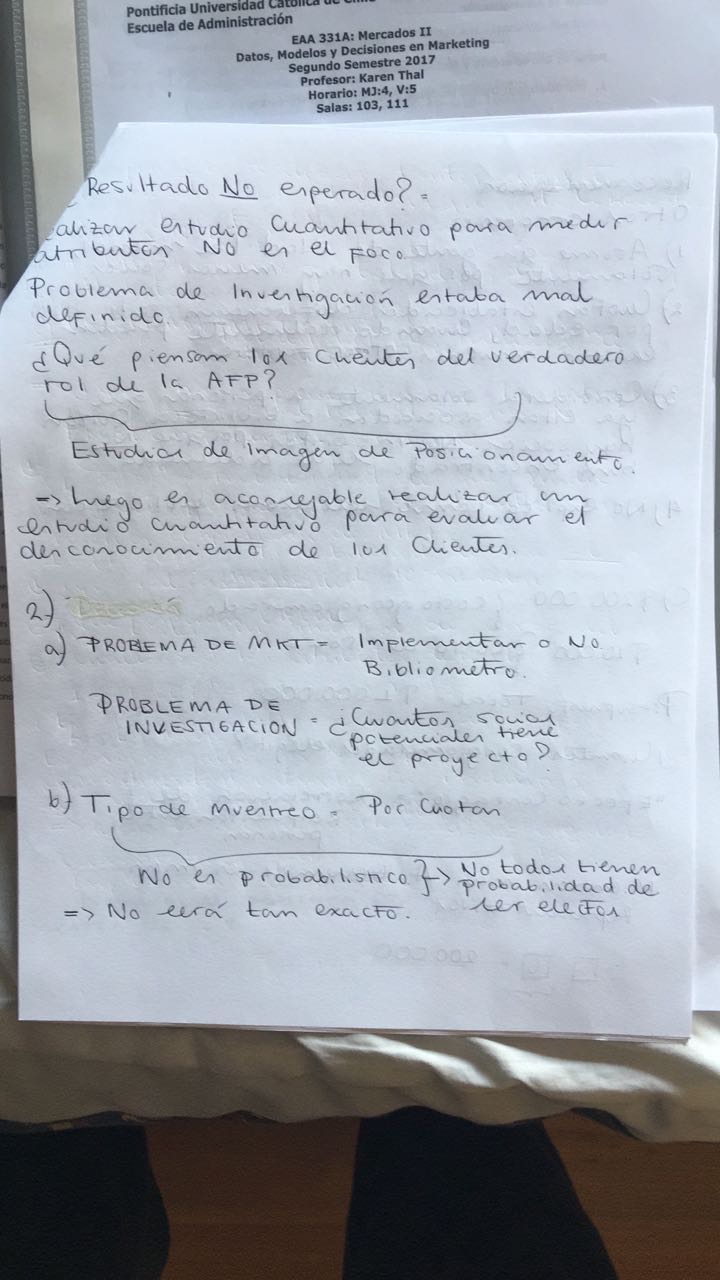 Pontificia Universidad Católica de Chile
Escuela de Administración
EAA 331A: Mercados II
Datos, Modelos y Decisiones en Marketing
Segundo Semestre 2017
Profesor: Karen Thal
Horario: MJ:4, V:5
Salas: 103, 111
Resultado No esperado? =
alizar estudio cuantitativo para medir
atributos NO es el FOCO.
Problema de Investigación estaba mal
definido.
¿Qué piensan los clientes del verdadero
rol de la AFP?
Estudios de imagen de Posicionamiento.
=> luego es aconsejable realizar un
estudio cuantitativo para evaluar el
desconocimiento de los clientes.
2)
a) PROBLEMA DE MKT = Implementar o No
Bibliometro.
PROBLEMA DE
INVESTIGACION = ¿Cuantos socios
potenciales tiene
el proyecto?
b) Tipo de muestreo = Por Cuotas
No es probabilistico } -> No todos tienen
probabilidad de
ser electos
=> No será tan exacto.